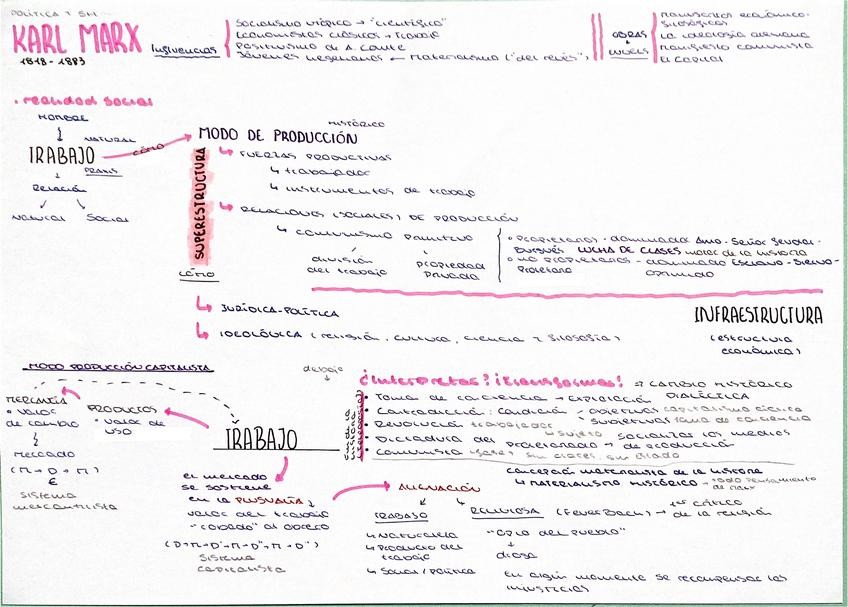 POLÍTICA Y SH
KARL MARX
1818-1883
Influencias
Socialismo utópico → "científico"
Economistas clásicos → trabajo
Positivismo de A. Comte
Jóvenes hegelianos ← Materialismo ("del revés")
OBRAS
+
ENGELS
Manuscritos económico-
filosóficos
La ideología alemana
Manifiesto comunista
El Capital
. realidad social
HOMBRE
NATURAL
TRABAJO
PRAXIS
CÓMO
Relación
Natural Social
HISTÓRICO
MODO DE PRODUCCIÓN
SUPERESTRUCTURA
CÓMO
↳ FUERZAS PRODUCTIVAS
↳ trabajador
↳ instrumentos de trabajo
↳ RELACIONES (SOCIALES) DE PRODUCCIÓN
↳ comunismo primitivo
división
del trabajo
propiedad
privada
• Propietarios - dominador Amo - Señor feudal -
Burgués LUCHA DE CLASES motor de la historia
• no propietarios - dominado Esclavo - Siervo -
Proletario oprimido
↳ JURÍDICA-POLÍTICA
↳ IDEOLÓGICA (religión, cultura, ciencia y filosofía)
INFRAESTRUCTURA
(estructura
económica)
MODO PRODUCCIÓN CAPITALISTA
MERCANCÍA
• valor
de cambio
PRODUCTOS
• valor de
uso
Mercado
(M → D → M)
€
Sistema
mercantilista
TRABAJO
el mercado
se sostiene
en la PLUSVALÍA
valor del trabajo
"robado" al obrero
(D→M→D'→M→D''→M→D''')
Sistema
capitalista
debajo
¿Interpretar? ¡transformar! ⇒ CAMBIO HISTÓRICO
DIALÉCTICA
• Toma de conciencia → EXPLOTACIÓN
• Contradicción: condición objetivas capitalismo cíclico
subjetivas toma de conciencia
• Revolución trabajador
↳ sujeto
• Dictadura del proletariado → socializar los medios
de producción
• Comunista iguales, sin clases, sin estado
Concepción materialista de la historia
↳ MATERIALISMO HISTÓRICO → todo pensamiento
de Marx
ALIENACIÓN
TRABAJO
↳ Naturaleza
↳ Producto del
trabajo
↳ Social / política
RELIGIOSA (Feuerbach) → 1er crítico
de la religión
"opio del pueblo"
+
diosa
En algún momento se recompensan las
injusticias